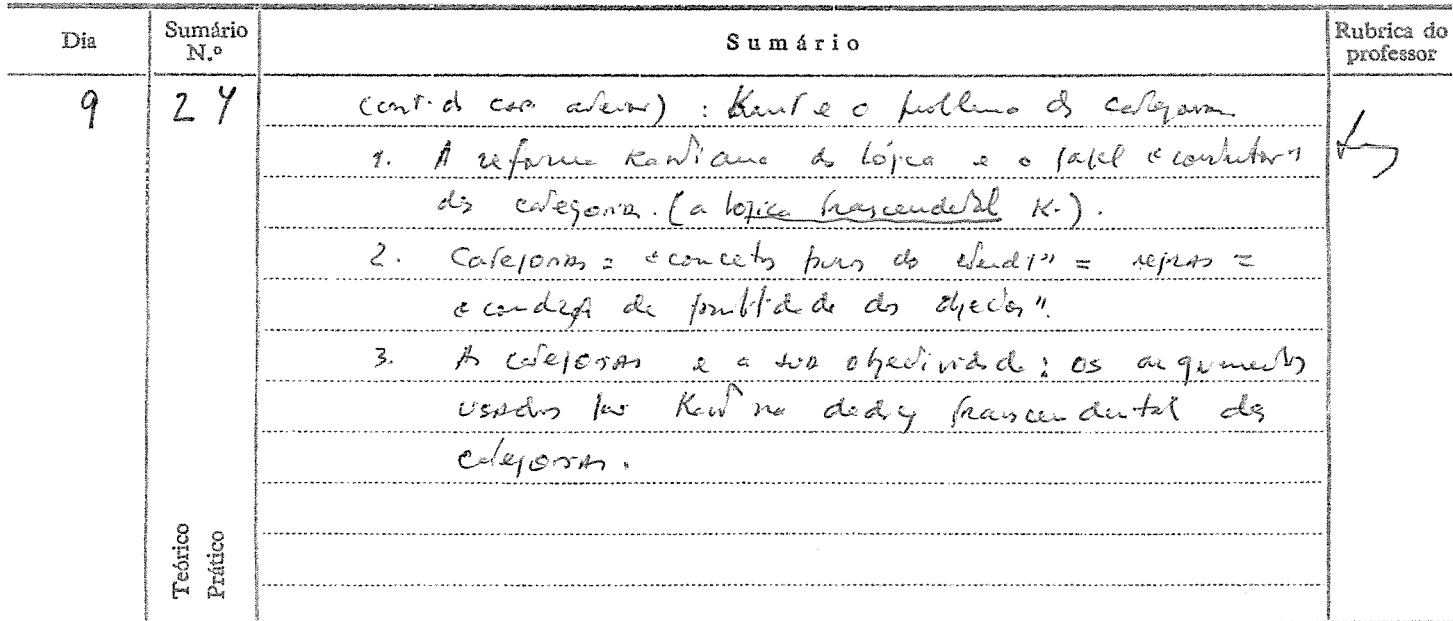 Dia Sumário N.º Sumário Rubrica do professor
9 24 : Kant e o problema das categorias
1. A reforma Kantiana da lógica e o papel
das categorias. (a lógica trascendetal K.).
2. Categorias = «conceitos puros do = regras =
«condição de possibilidade dos objectos".
3. As categorias e a sua objectividade: os argumentos
usados por Kant na trascendental das
categorias.
Teórico
Prático